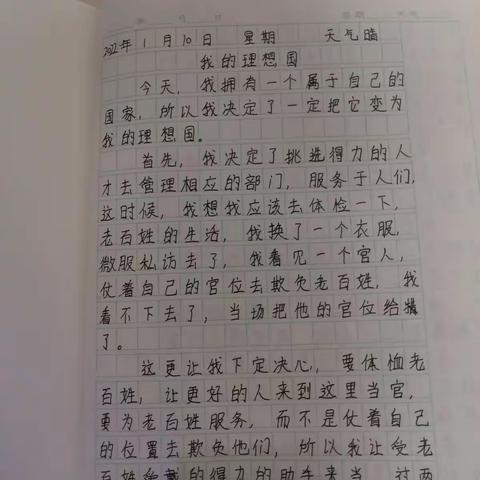 2022年 1月 10日 星期 天气晴
我的理想国
今天，我拥有一个属于自己的
国家，所以我决定了一定把它变为
我的理想国。
首先，我决定了挑选得力的人
才去管理相应的部门，服务于人们，
这时候，我想我应该去体检一下，
老百姓的生活，我换了一个衣服，
微服私访去了，我看见一个官人，
仗着自己的官位去欺负老百姓，我
看不下去了，当场把他的官位给摘
了。
这更让我下定决心，要体恤老
百姓，让更好的人来到这里当官，
更为老百姓服务，而不是仗着自己
的位置去欺负他们，所以我让受老
百姓爱戴的得力的助手来当